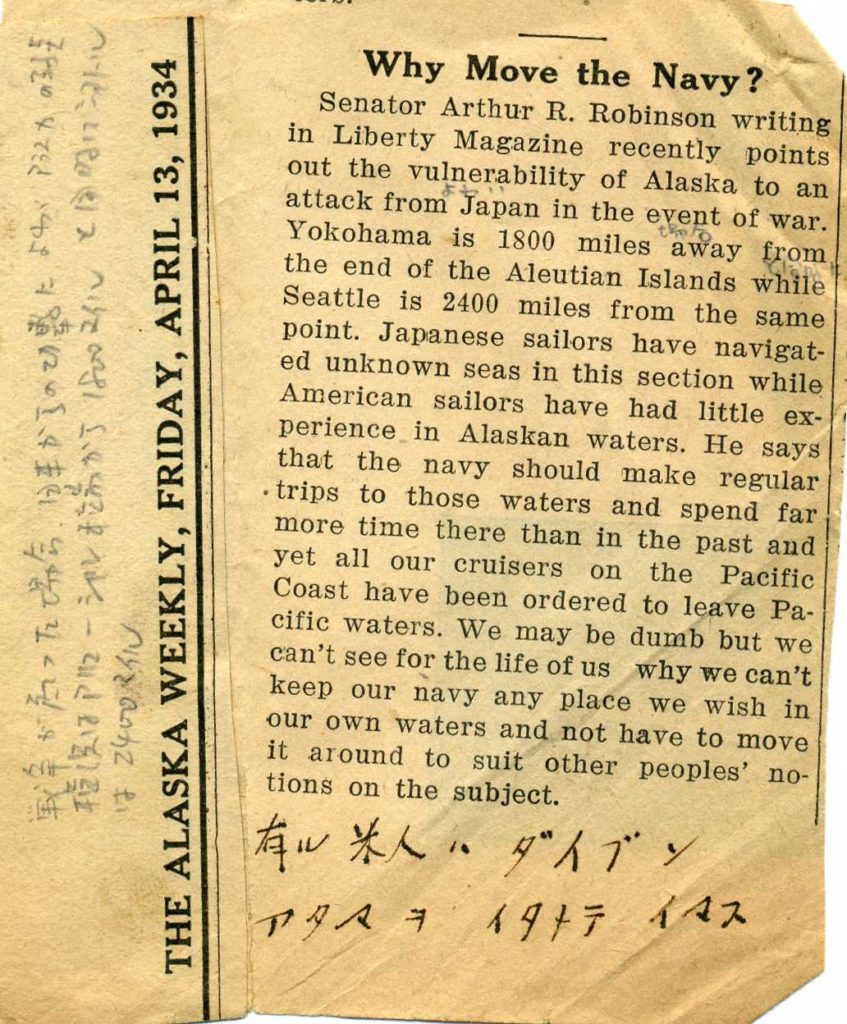 THE ALASKA WEEKLY, FRIDAY, APRIL 13, 1934
戦争が有った場合、日本からの攻撃によわい
横浜は から 1800マイル
は 2400マイル
Why Move the Navy?
Senator Arthur R. Robinson writing
in Liberty Magazine recently points
out the vulnerability of Alaska to an
よわい
attack from Japan in the event of war.
Yokohama is 1800 miles away from
the end of the Aleutian Islands while
Seattle is 2400 miles from the same
point. Japanese sailors have navigat-
ed unknown seas in this section while
American sailors have had little ex-
perience in Alaskan waters. He says
that the navy should make regular
trips to those waters and spend far
more time there than in the past and
yet all our cruisers on the Pacific
Coast have been ordered to leave Pa-
cific waters. We may be dumb but we
can't see for the life of us why we can't
keep our navy any place we wish in
our own waters and not have to move
it around to suit other peoples' no-
tions on the subject.
有ル 米人ハ ダイブン
アタマヲ イタメテ イマス